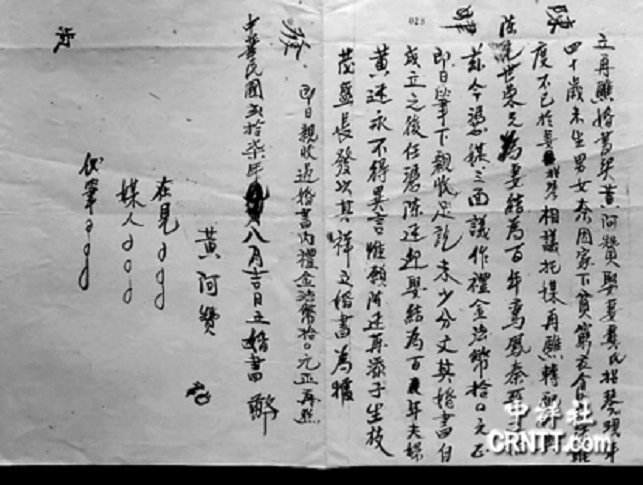 立再醮婚書契黃阿贊娶妻龔氏招琴現年
四十歲未生男女奈因家下貧窮衣食
度不已於妻招琴相議托媒再醮轉配
陳宅世東兄為妻結為百年鸞鳳秦晉
茲今憑媒三面議作禮金法幣拾〇元正
即日筆下親收足訖未少分文其婚書自
成立之後任憑陳迎起娶結為百年夫婦
黃迷永不得異言惟願陳迷再添子生枝
茂盛長發以其祥立婚書為據
028
即日親收過婚書內禮金法幣拾〇元正再照
中華民國弍拾柒年八月吉日立婚書
黃阿贊
在見
媒人
代筆
中評社
CRNTT.com